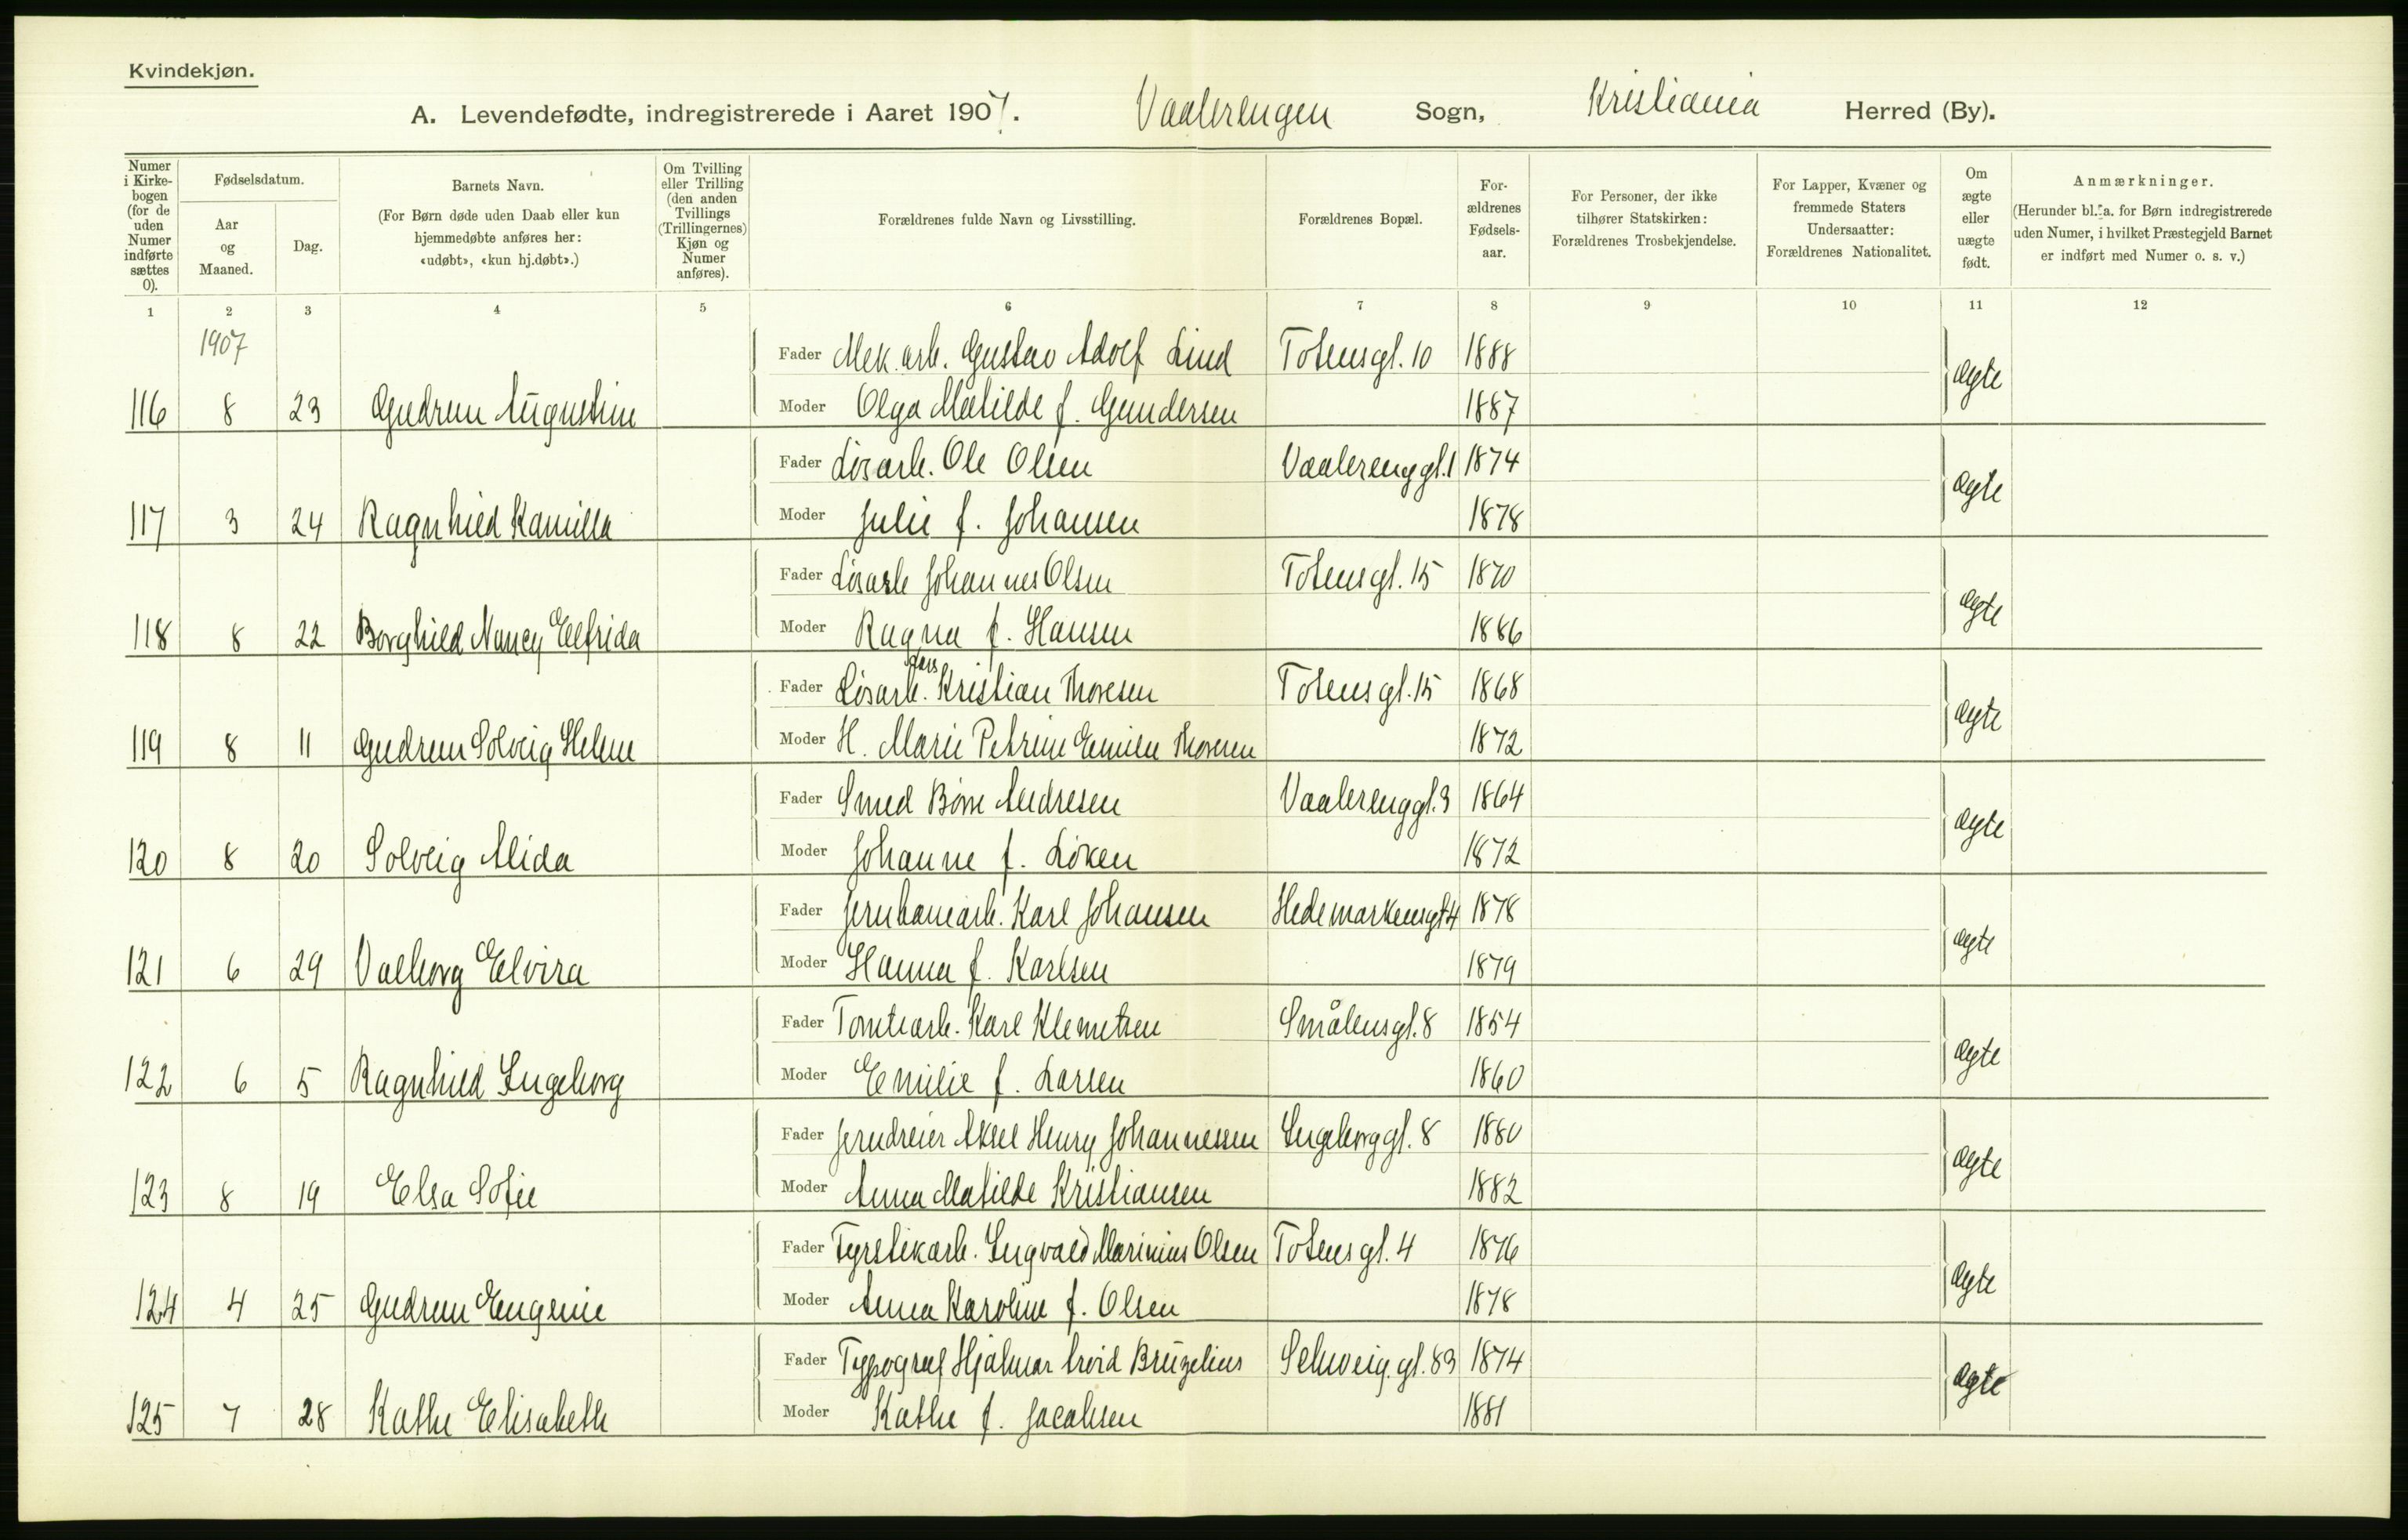 Kvindekjøn.
A. Levendefødte, indregistrerede i Aaret 1907. Vaalerengen Sogn, Kristiania Herred (By).
Numer i Kirkebogen (for de uden Numer indførte sættes 0).
Fødselsdatum.
Aar og Maaned.
Dag.
Barnets Navn.
(For Børn døde uden Daab eller kun hjemmedøbte anføres her: «udøbt», «kun hj.døbt».)
Om Tvilling eller Trilling (den anden Tvillings (Trillingernes) Kjøn og Numer anføres).
Forældrenes fulde Navn og Livsstilling.
Forældrenes Bopæl.
Forældrenes Fødselsaar.
For Personer, der ikke tilhører Statskirken: Forældrenes Trosbekjendelse.
For Lapper, Kvæner og fremmede Staters Undersaatter: Forældrenes Nationalitet.
Om ægte eller uægte født.
Anmærkninger.
(Herunder bl. a. for Børn indregistrerede uden Numer, i hvilket Præstegjeld Barnet er indført med Numer o. s. v.)
1 2 3 4 5 6 7 8 9 10 11 12
1907
Fader Mek. arb. Gustav Adolf Lind Totensgt. 10 1888 ægte
116 8 23 Gudrun Augustine Moder Olga Matilde f. Gundersen 1887
Fader Løsarb. Ole Olsen Vaalerenggt. 1 1874 ægte
117 3 24 Ragnhild Kamilla Moder Julie f. Johansen 1878
Fader Løsarb Johannes Olsen Totensgt. 15 1870 ægte
118 8 22 Borghild Nancy Elfrida Moder Ragna f. Hansen 1886
Fader Løsarb. Kristian Thoresen Totensgt. 15 1868 ægte
119 8 11 Gudrun Solveig Helene Moder H. Marie Petrine Emilie Thoresen 1872
Fader Smed Børre Andresen Vaalerenggt. 3 1864 ægte
120 8 20 Solveig Alida Moder Johanne f. Løken 1872
Fader Jernbanearb. Karl Johansen Hedemarkensgt 4 1878 ægte
121 6 29 Valborg Elvira Moder Hanna f. Karlsen 1879
Fader Tomtearb. Karl Klemetsen Smålensgt. 8 1854 ægte
122 6 5 Ragnhild Ingeborg Moder Emilie f. Larsen 1860
Fader Jerndreier Aksel Henry Johannessen Ingeborggt. 8 1880 ægte
123 8 19 Elsa Sofie Moder Anna Matilde Kristiansen 1882
Fader Fyrstikarb. Ingvald Marinius Olsen Totensgt. 4 1876 ægte
124 4 25 Gudrun Eugenie Moder Anna Karoline f. Olsen 1878
Fader Typograf Hjalmar Bruzelius Schweig. gt. 83 1874 ægte
125 7 28 Kathe Elisabeth Moder Kathe f. Jacobsen 1881